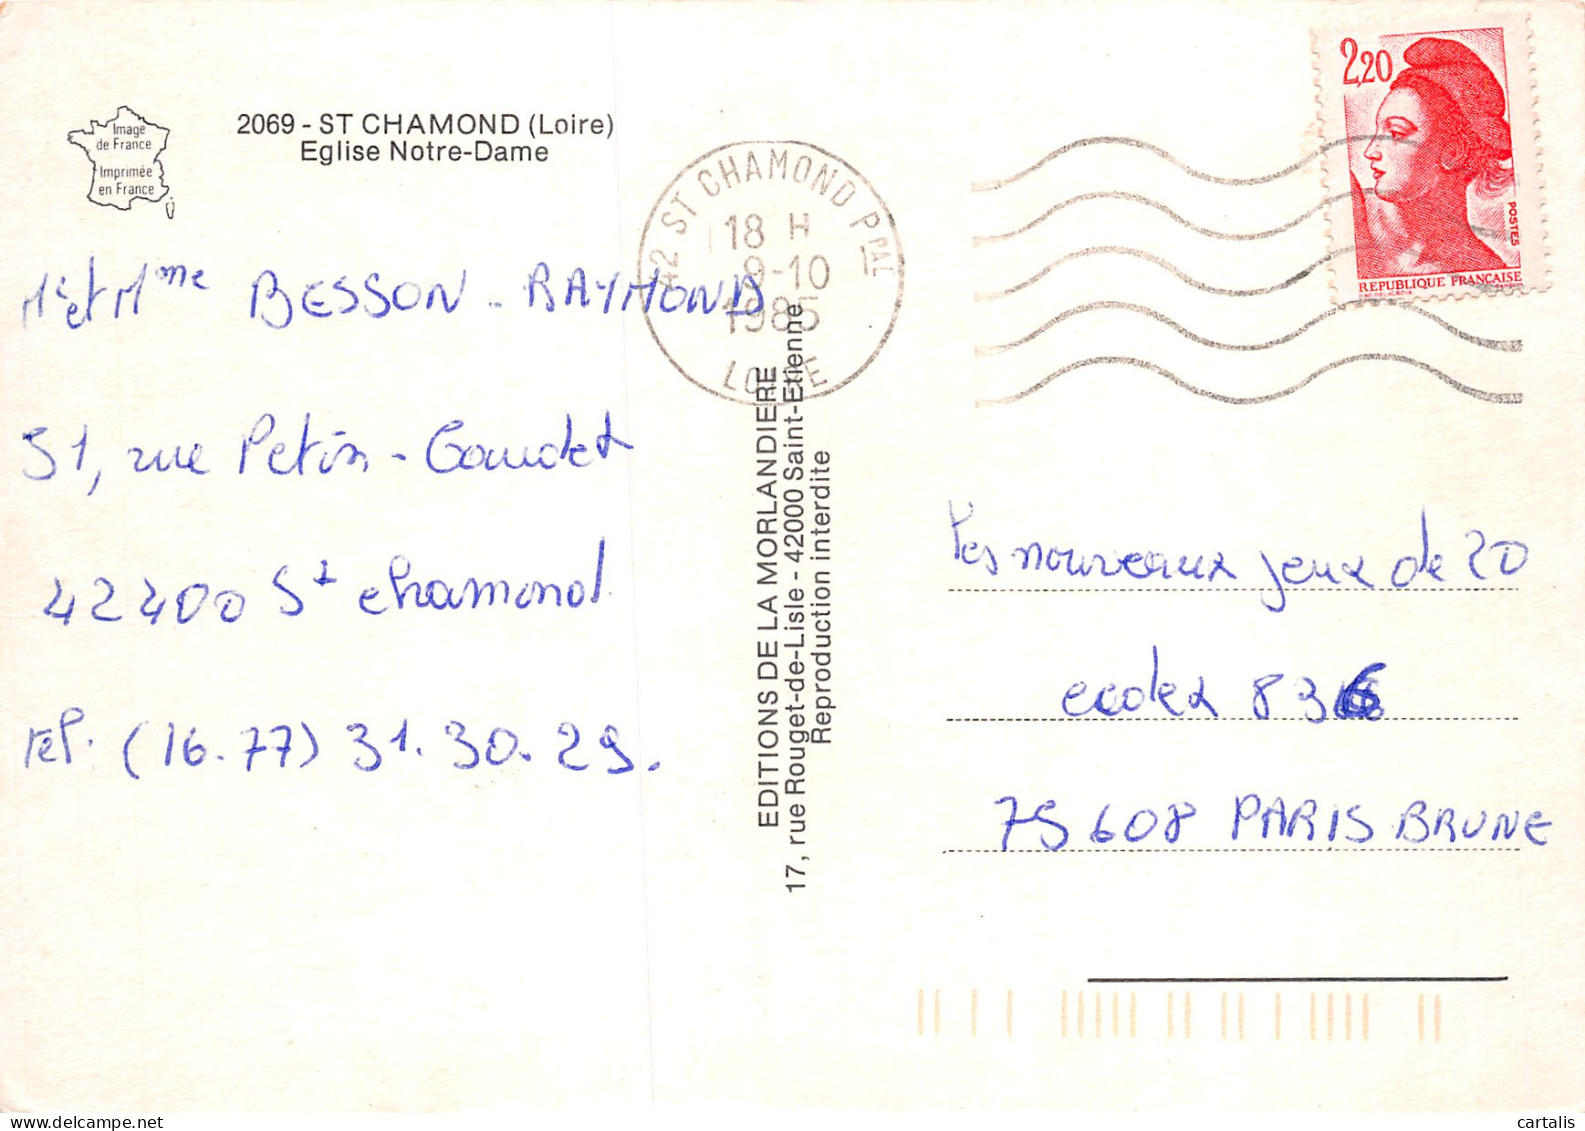 Image
de France
Imprimée
en France
2069 - ST CHAMOND (Loire)
Eglise Notre-Dame
42 ST CHAMOND PPAL
18 H
9-10
1985
LOIRE
2,20
POSTES
REPUBLIQUE FRANÇAISE
Mr et Mme BESSON - RAYMOND
51, rue Petin - Gaudet
42400 St chamond
tel. (16.77) 31.30.29.
EDITIONS DE LA MORLANDIERE
17, rue Rouget-de-Lisle - 42000 Saint-Etienne
Reproduction interdite
Les nouveaux jeux de 20
ecodex 836
75608 PARIS BRUNE
delcampe.net
cartalis